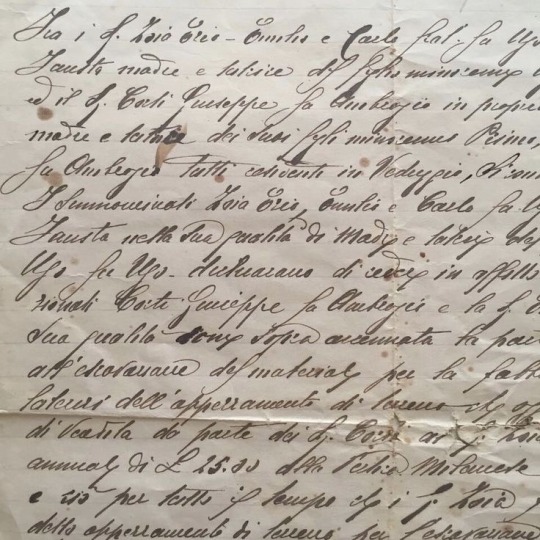 Fra i S. Zoia Ezio - Emilio e Carlo frat. fu Ugo
Fausta madre e tutrice del figlio minorenne
ed il S. Corti Giuseppe fu Ambrogio in proprio
madre e tutrice dei suoi figli minorenni Primo,
fu Ambrogio tutti coviventi in Vedeggio, Si con
I Summominati Zoia Ezio, Emilio e Carlo fu
Fausta nella sua qualità di Madre e tutrice del
Ugo fu Ugo - dichiarano di cedere in affitto
zionati Corti Giuseppe fu Ambrogio e la S.
Sua qualità come sopra accennata la parte
all'escavazione del materiale per la
laterizi dell'apperramento di terreno
di Vendita da parte dei S. Corti ai S. Zoia
annuale di £ 25.30 alla Pertica Milanese
e ciò per tutto il tempo che i S. Zoia
detto apperramento di terreno per l'escavazione